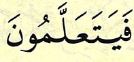 فَيَتَعَلَّمُونَ